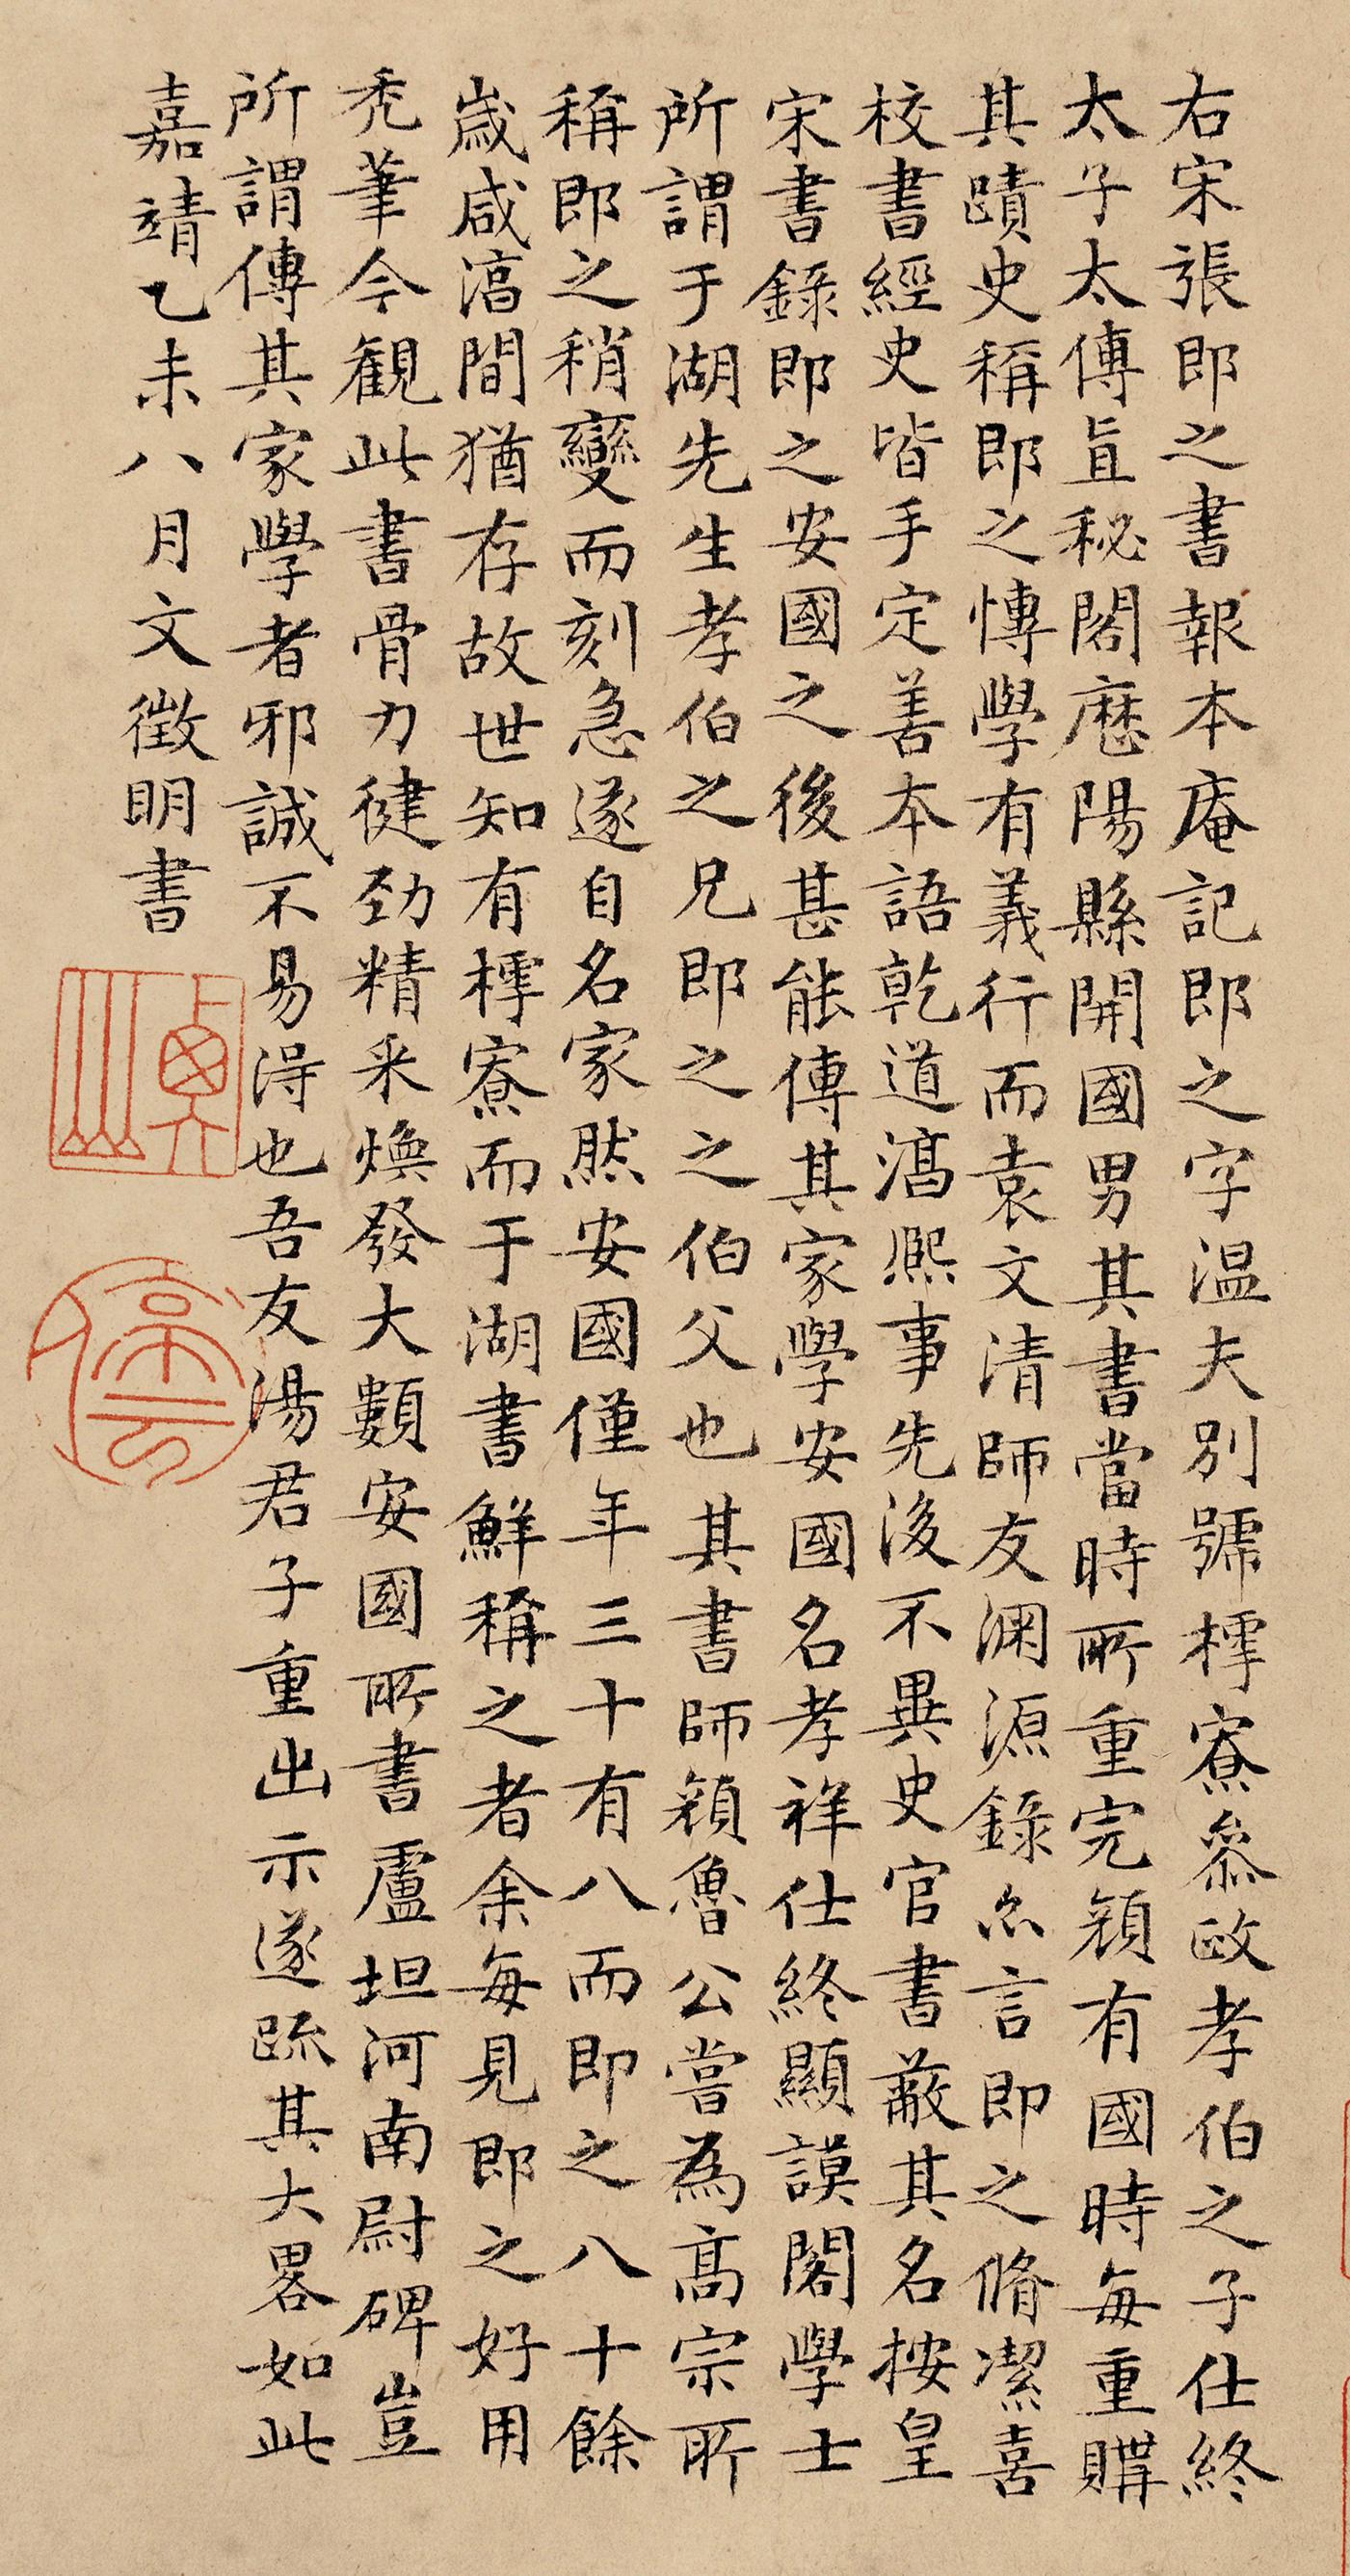 右宋張即之書報本庵記即之字温夫別號樗寮叅政孝伯之子仕終
太子太傅直秘閣歷陽縣開國男其書當時所重完顏有國時每重購
其蹟史稱即之博學有義行而袁文清師友淵源錄亦言即之脩潔喜
校書經史皆手定善本語乾道淳熙事先後不異史官書蔽其名按皇
宋書錄即之安國之後甚能傳其家學安國名孝祥仕終顯謨閣學士
所謂于湖先生孝伯之兄即之之伯父也其書師顏魯公嘗為高宗所
稱即之稍變而刻急遂自名家然安國僅年三十有八而即之八十餘
歲咸淳間猶存故世知有樗寮而于湖書鮮稱之者余每見即之好用
禿筆今觀此書骨力健勁精采煥發大類安國所書盧坦河南尉碑豈
所謂傳其家學者邪誠不易得也吾友湯君子重出示遂疏其大畧如此
嘉靖乙未八月文徵明書
貞山
停雲